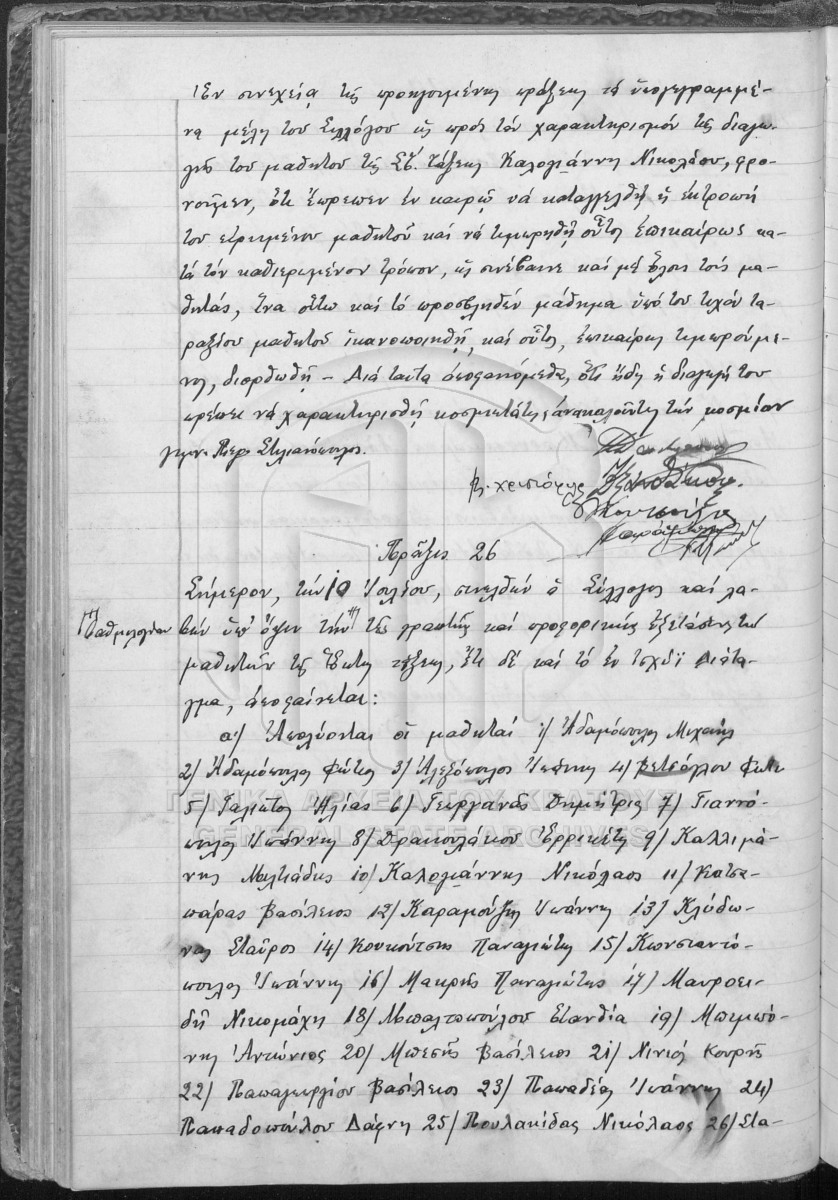 Ἐν συνεχείᾳ τῆς προηγουμένης πράξεως τὰ ὑπογεγραμμέ-
να μέλη τοῦ Συλλόγου ὡς πρὸς τὸν χαρακτηρισμὸν τῆς διαγω-
γῆς τοῦ μαθητοῦ τῆς Στ΄. τάξεως Καλογιάννη Νικολάου, φρο-
νοῦμεν, ὅτι ἔπρεπεν ἐν καιρῷ νὰ καταγγελθῇ ἡ ἐκτροπὴ
τοῦ εἰρημένου μαθητοῦ καὶ νὰ τιμωρηθῇ οὗτος ἐπικαίρως κα-
τὰ τὸν καθιερωμένον τρόπον, ὡς συνέβαινε καὶ μὲ ὅλους τοὺς μα-
θητάς, ἵνα οὕτω καὶ τὸ προσβληθὲν μάθημα ὑπὸ τοῦ τυχὸν τα-
ραξίου μαθητοῦ ἱκανοποιηθῇ, καὶ οὗτος, ἐπικαίρως τιμωρούμε-
νος, διορθωθῇ – Διὰ ταῦτα ἀποφαινόμεθα, ὅτι ἤδη ἡ διαγωγή του
πρέπει νὰ χαρακτηρισθῇ κοσμιωτάτη, ἀνακαλοῦντες τὴν κοσμίαν
Στυλιανόπουλος.
Πρᾶξις 26
Σήμερον, τὴν 10 Ἰουλίου, συνελθὼν ὁ Σύλλογος καὶ λα-
βὼν ὑπ' ὄψιν τὴν (+) τῆς γραπτῆς καὶ προφορικῆς ἐξετάσεως τῶν
(+) βαθμολογίαν
μαθητῶν τῆς ἕκτης τάξεως, ἔτι δὲ καὶ τὸ ἐν ἰσχύϊ Διάτα-
γμα, ἀποφαίνεται:
α΄/ Ἀπολύονται οἱ μαθηταὶ 1/ Ἀδαμόπουλος Μιχαὴλ
2/ Ἀδαμόπουλος Φώτιος 3/ Ἀλεξόπουλος Ἰωάννης 4/ Βετσόγλου
5/ Γαλιῶτος Ἠλίας 6/ Γεωργανᾶς Δημήτριος 7/ Γιαννό-
πουλος Ἰωάννης 8/ Δρακουλάκου Ἑρριέττη 9/ Καλλιμά-
νης Μιλτιάδης 10/ Καλογιάννης Νικόλαος 11/ Κατσα-
πάρας Βασίλειος 12/ Καραμούζης Ἰωάννης 13/ Κλύδω-
νας Σταῦρος 14/ Κουκούτσης Παναγιώτης 15/ Κωνσταντό-
πουλος Ἰωάννης 16/ Μακρῆς Παναγιώτης 17/ Μαυροει-
δῆ Νικομάχη 18/ Μπαλτοπούλου Εὐανθία 19/ Μπιμπό-
νης Ἀντώνιος 20/ Μπεσῆς Βασίλειος 21/ Νινιὸς Κουρῆς
22/ Παπαγεωργίου Βασίλειος 23/ Παπαδέας Ἰωάννης 24/
Παπαδοπούλου Δάφνη 25/ Πουλακίδας Νικόλαος 26/ Στα-
ΓΕΝΙΚΑ ΑΡΧΕΙΑ ΤΟΥ ΚΡΑΤΟΥΣ
GENERAL STATE ARCHIVES